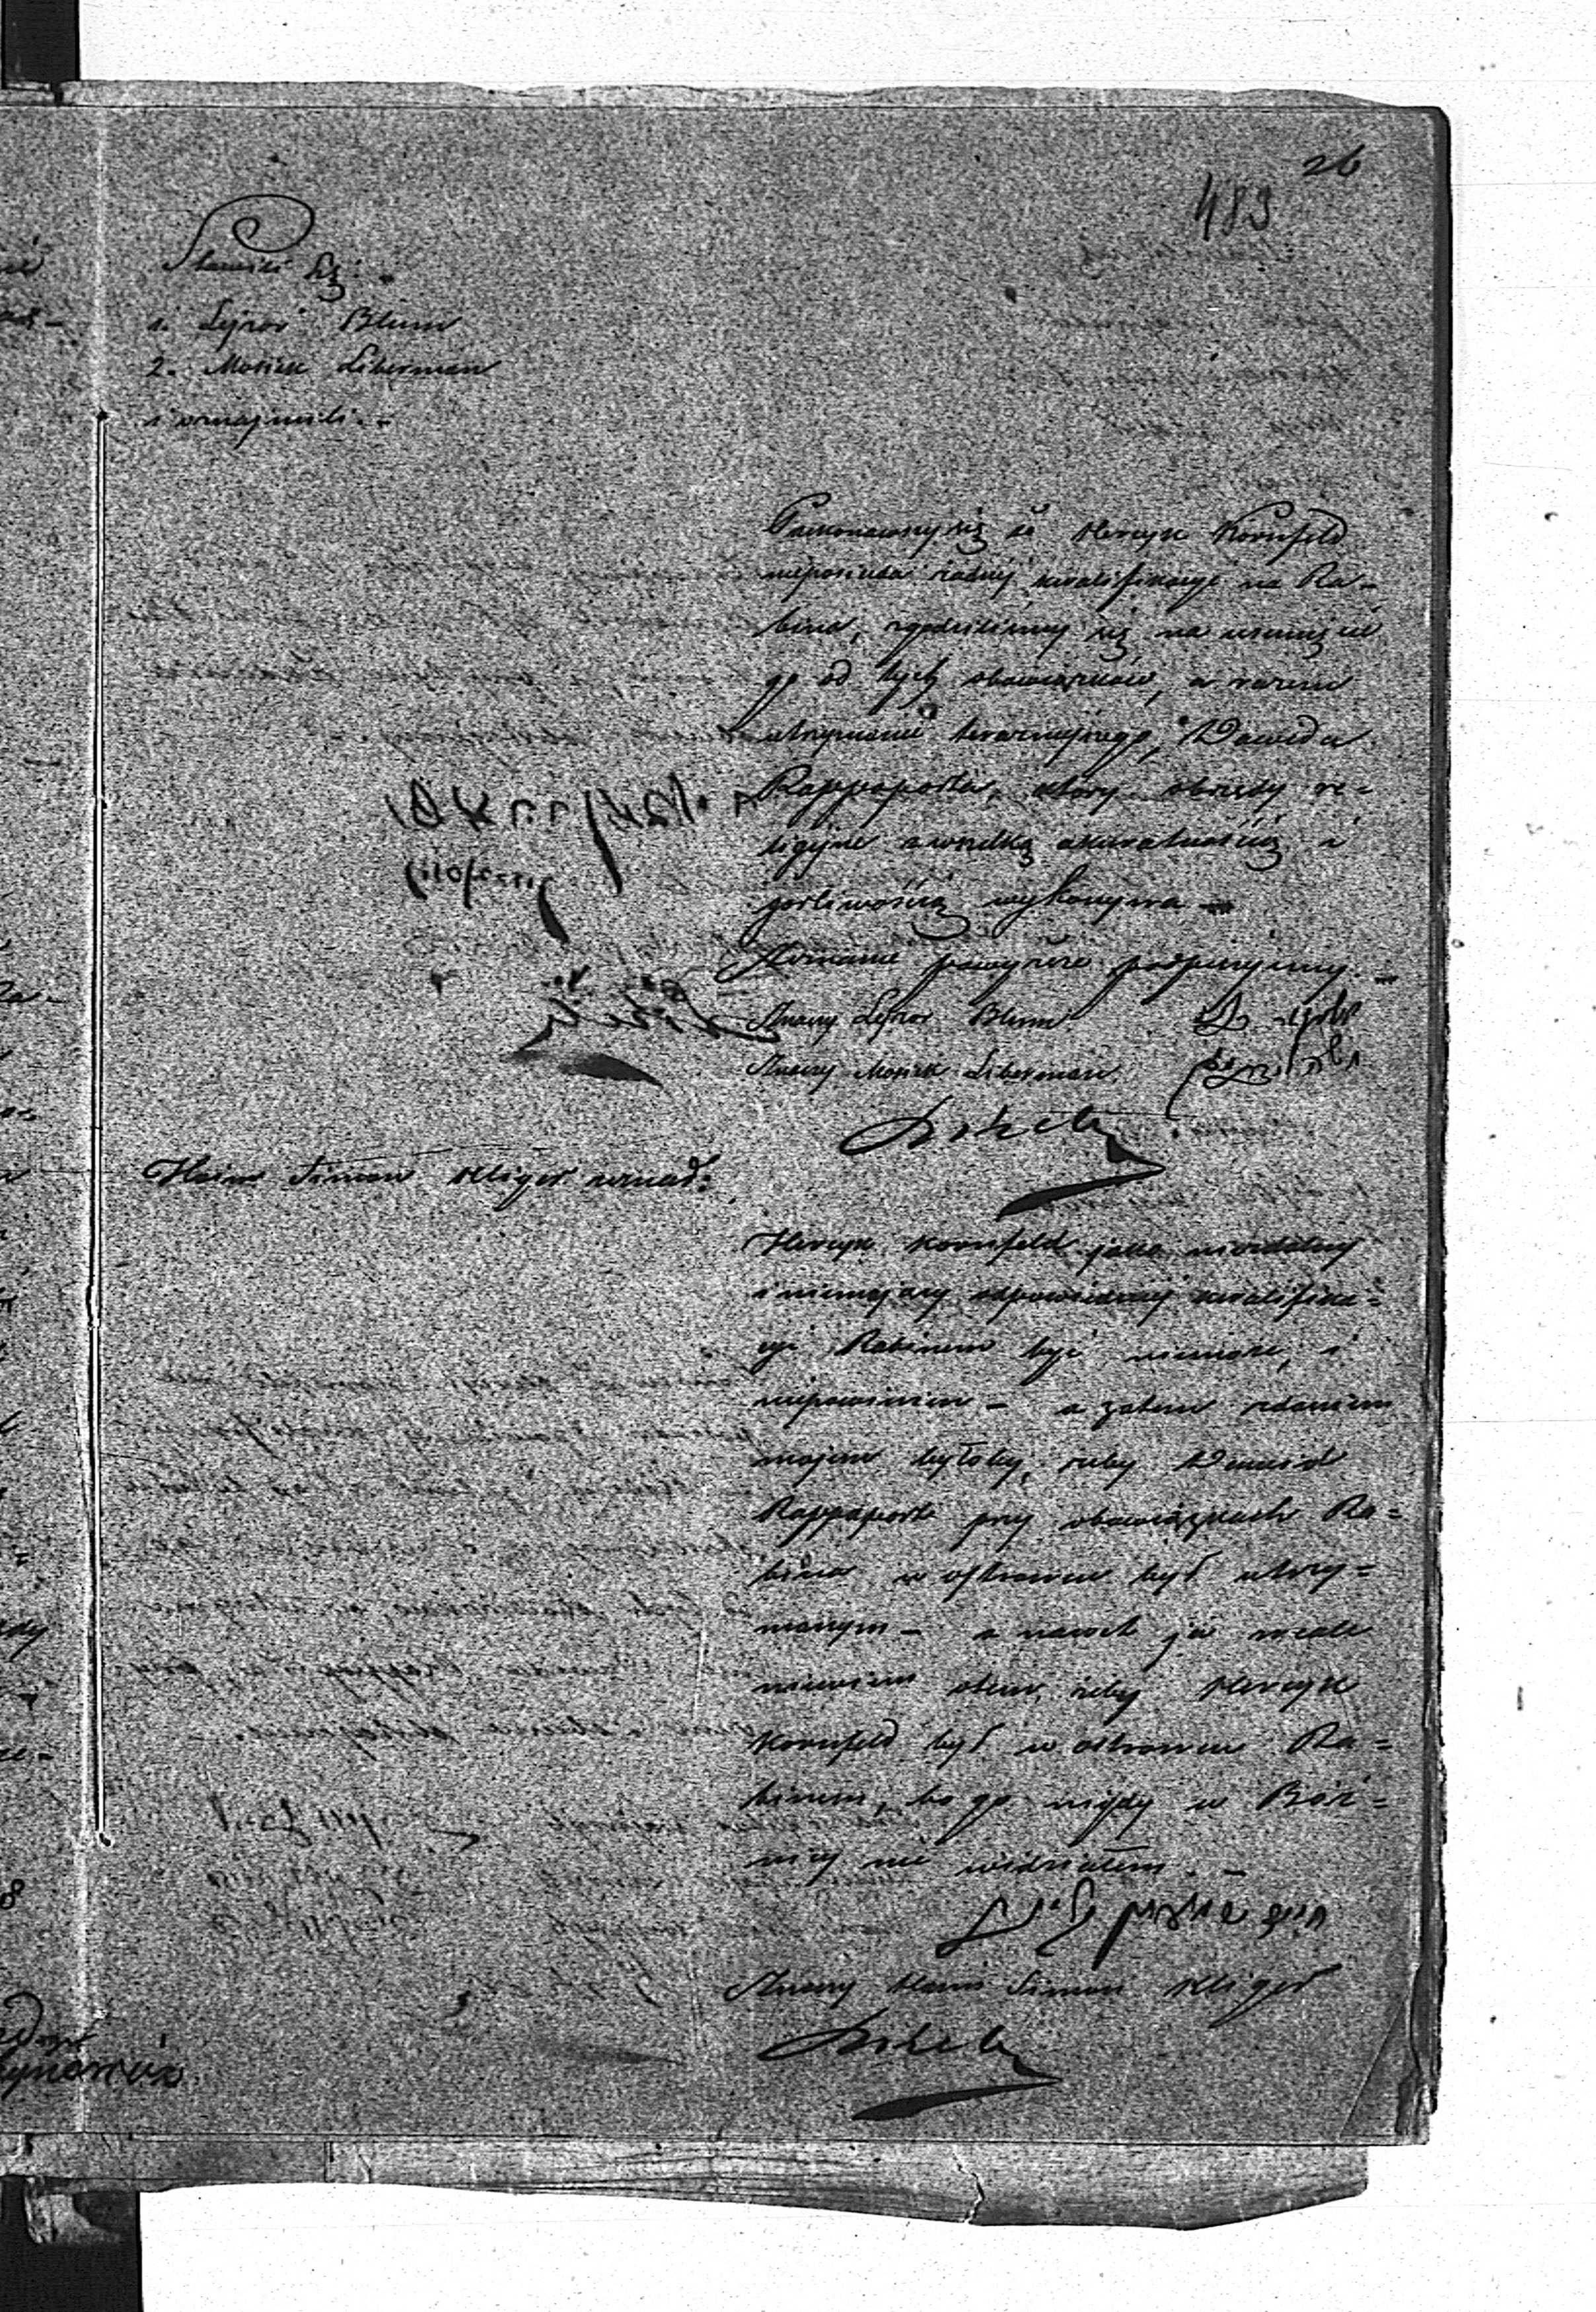 26
483
Stawili się:
1. Lejzor Blum
2. Mosiek Liberman
i oznajmili. -
Przekonawszy się że Herszek Kornfeld
nieposiada żadnej kwalifikacyi na Ra-
bina, zgodziliśmy się na usunięcie
go od tych obowiązków, a razem
utrzymanie teraźniejszego, Dawida
Rappaporta, który obrzędy re-
ligijne z wszelką akuratnością i
gorliwością wykonywa -
Zeznanie powyższe podpisujemy. -
Znaczy Lejzor Blum
Znaczy Mosiek Liberman
Haim Simon Kligier zeznał:
Herszek Kornfeld jako niezdatny
i niemający odpowiedniej kwalifika=
cyi Rabinem być niemoże, i
niepowinien - a zatem zdaniem
mojem byłoby, żeby Dawid
Rappaport przy obowiązkach Ra=
bina w Ostrowcu był utrzy=
manym - a nawet ja wcale
niewiem o tem, żeby Herszek
Kornfeld był w Ostrowcu Ra=
binem, bo go nigdy w Boż=
nicy nie widziałem. -
חיים שמעון
Znaczy Haim Simon Kligier